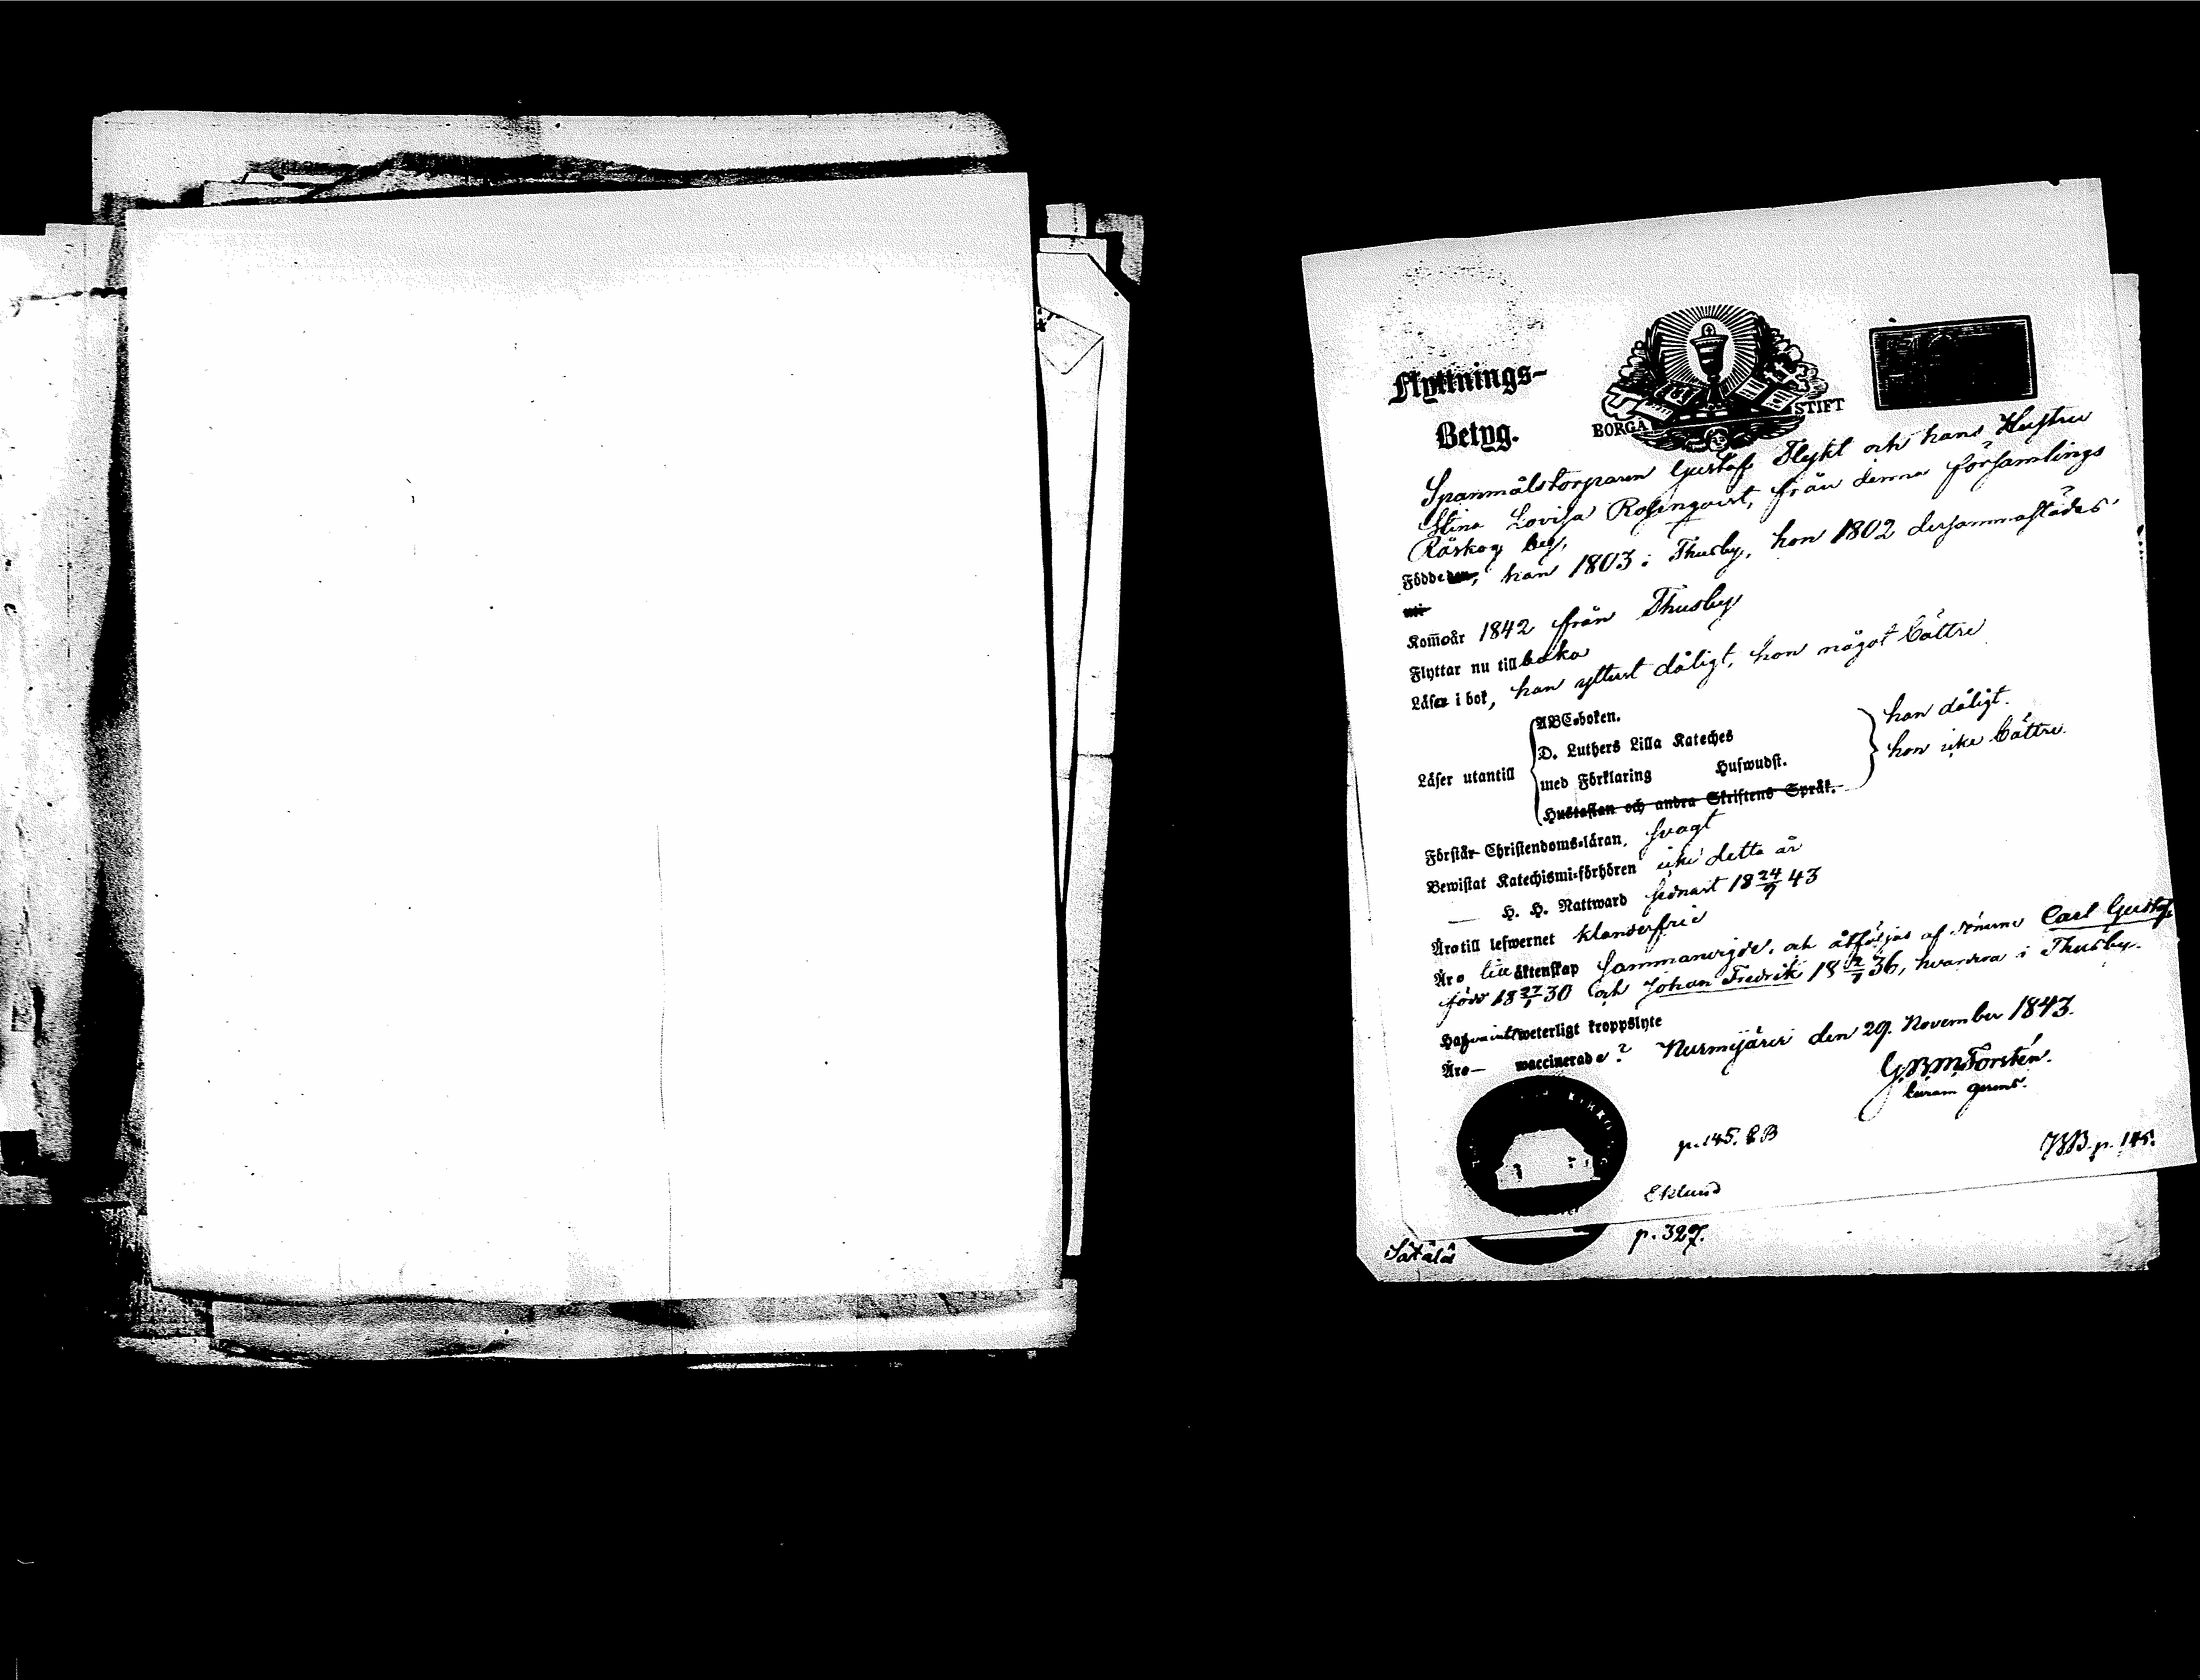 Flyttnings-
Betyg.
BORGÅ STIFT
Spanmålstorparen Gustaf Flykt och hans Hustru
Stina Lovisa Rosenqvist, från denna församlings
Röskog by,
Födde den, han 1803 i Thusby, hon 1802 dersammastädes
uti
Kom̅o år 1842 från Thusby
Flyttar nu tillbaka
Läser i bok, han ytterst dåligt, hon något bättre
Läser utantill
ABC-boken.
D. Luthers Lilla Kateches
med Förklaring Hufwudst.
Hustaflan och andra Skriftens Språk.
han dåligt.
hon icke bättre.
Förstår Christendoms-läran, svagt
Bewistat Katechismi-förhören icke detta år
— H. H. Nattward sednast 18 24/9 43
Äro till lefwernet klanderfrie
Äro till äktenskap sammanvigde, och åtföljas af sönerne Carl Gustaf
född 18 27/1 30 och Johan Fredrik 18 12/1 36, hvardera i Thusby.
Hafva intet weterligt kroppslyte
Äro — waccinerade? Nurmijärvi den 29. November 1843.
G.W.M. Forstén.
curam gerens.
p. 145. C B
p. 145.
Eklund
p. 327.
Sätälä